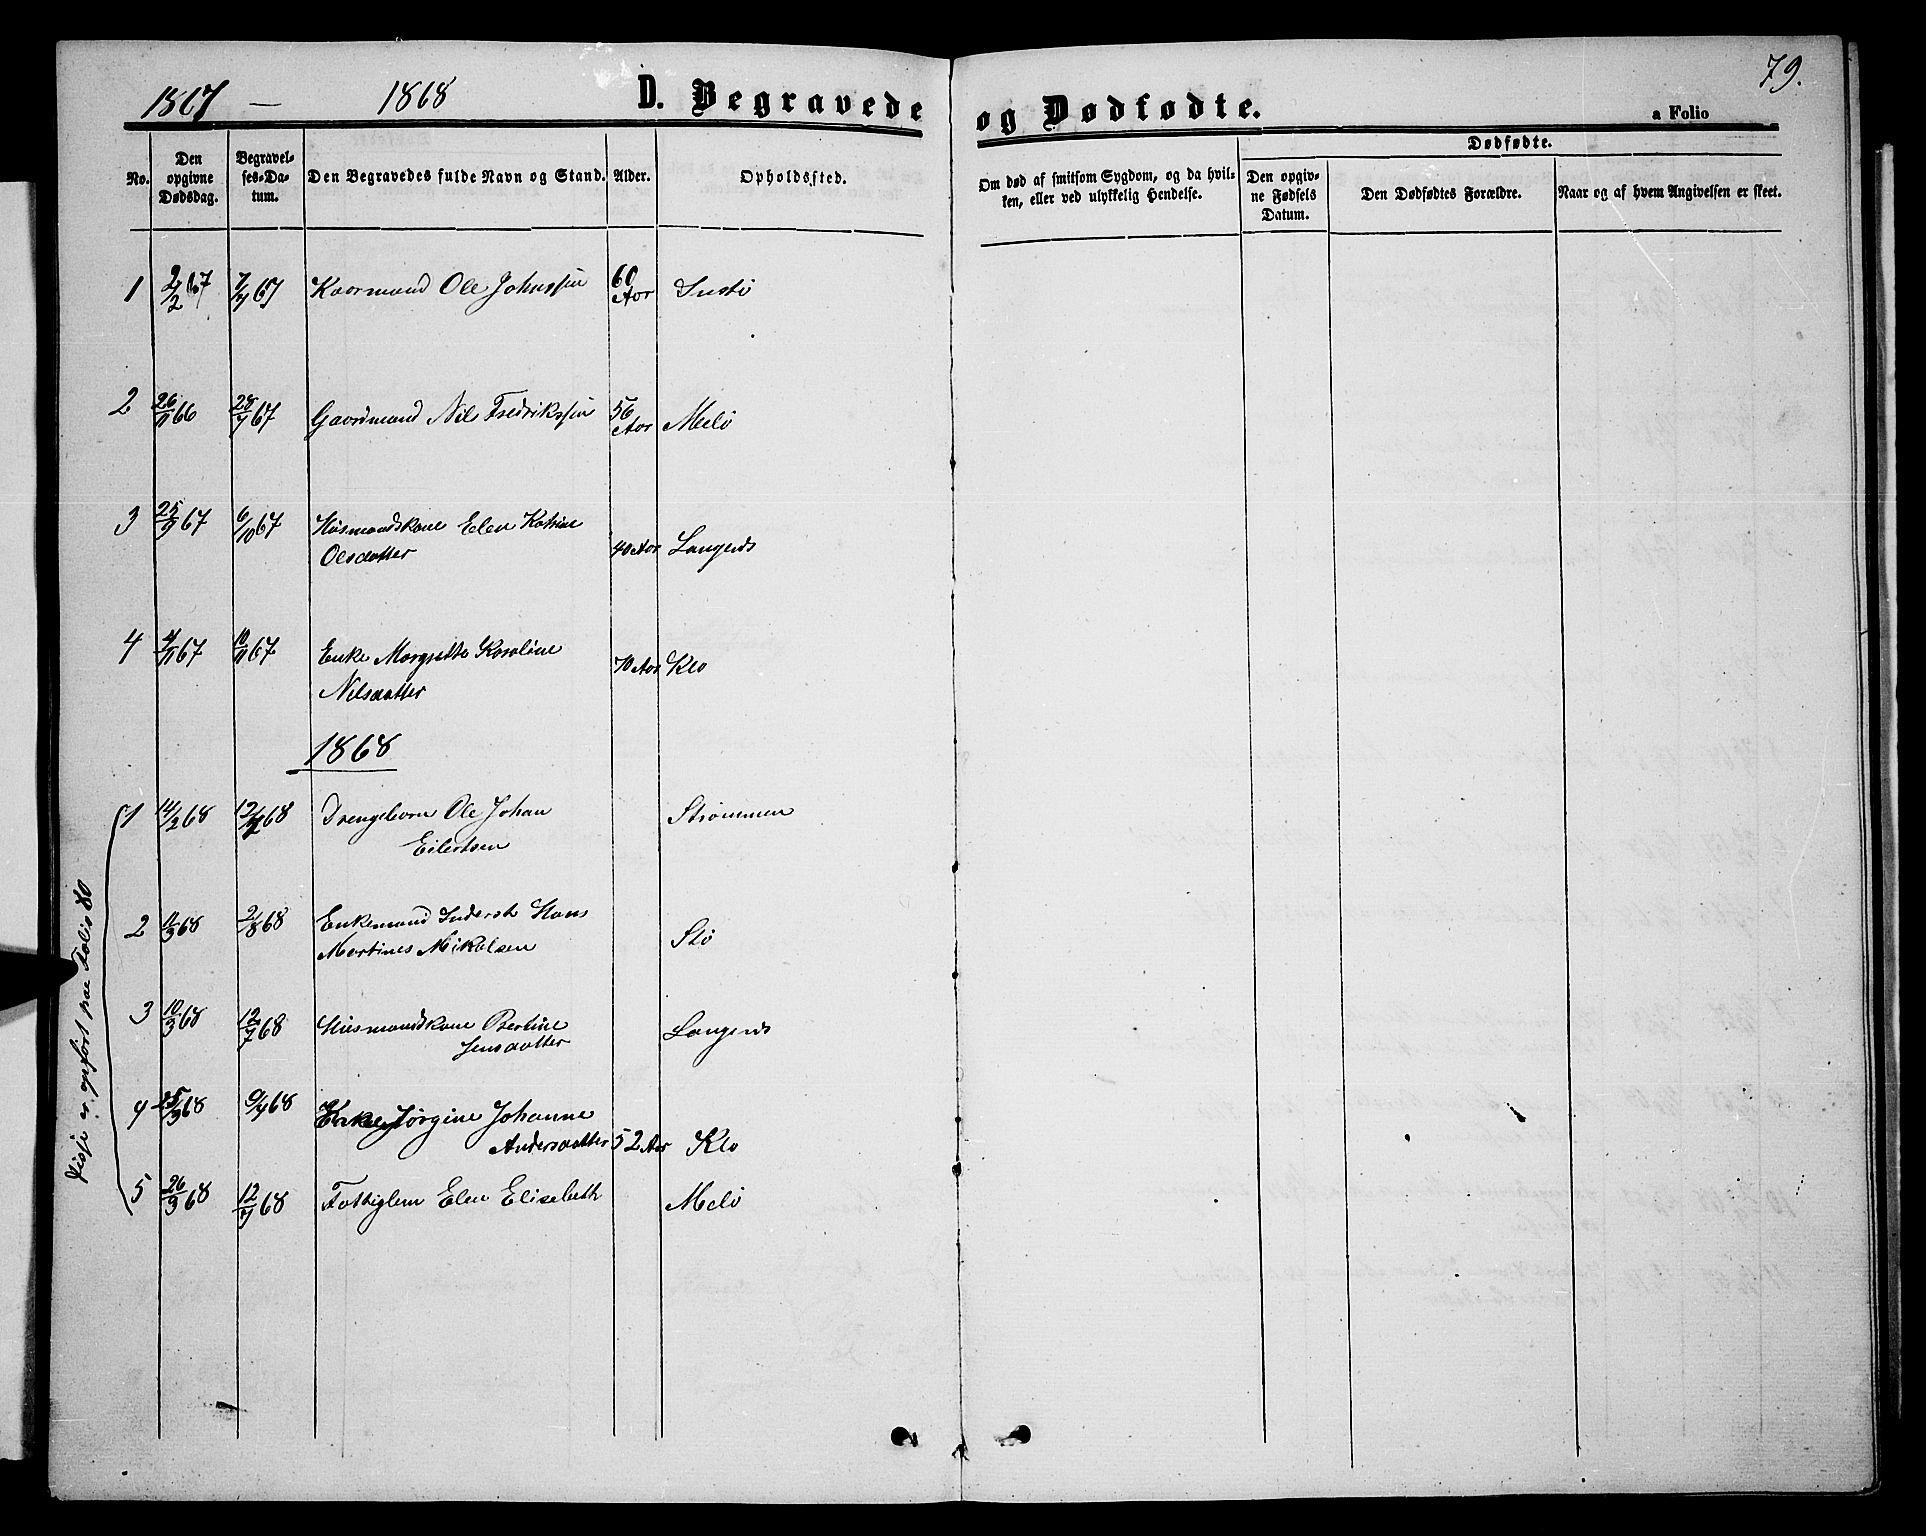 1867 — 1868 D. Begravede og Dødfødte. 79.
a Folio
No.
Den opgivne Dødsdag.
Begravel-ses-Da-tum.
Den Begravedes fulde Navn og Stand.
Alder.
Opholdssted.
Om død af smitsom Sygdom, og da hvil-
ken, eller ved ulykkelig Hendelse.
Dødfødte.
Den opgiv-
ne Fødsels
Datum.
Den Dødfødtes Forældre.
Naar og af hvem Angivelsen er skeet.
1 2/2 67 7/7 67 Kaarmand Ole Johnssen 60 Aar
2 26/11 66 28/7 67 Gaardmand Nils Fredrikssen 56 Aar Melø
3 25/9 67 6/10 67 Husmandskone Elen Katrine
Olsdatter 40 Aar Langenes
4 4/11 67 10/11 67 Enke Margrethe Karoline
Nilsdatter 70 Aar Klo
1868
1 14/2 68 12/7 68 Drengebarn Ole Johan
Eilertsen Strømmen
2 11/3 68 2/8 68 Enkemand Inderst Hans
Martines Mikalsen Stø
3 10/3 68 12/7 68 Husmandskone Bertine
Jensdatter Langenes
4 25/3 68 9/4 68 Enke Jørgine Johanne
Andersdatter 52 Aar Klo
5 26/3 68 12/7 68 Fattiglem Elen Elisebeth Melø
Disse er opført paa Folio 80